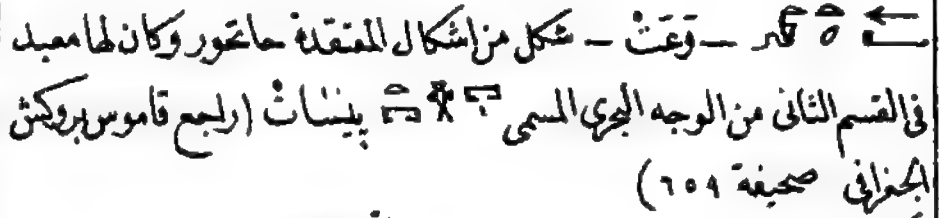 – وَعَتْ – شكل من اشكال المعتقدة حاتحور وكان لها معبد
فى القسم الثانى من الوجه البحرى المسمى پينسات (راجع قاموس بروكش
الجغرافى صحيفة ٦٥٩)